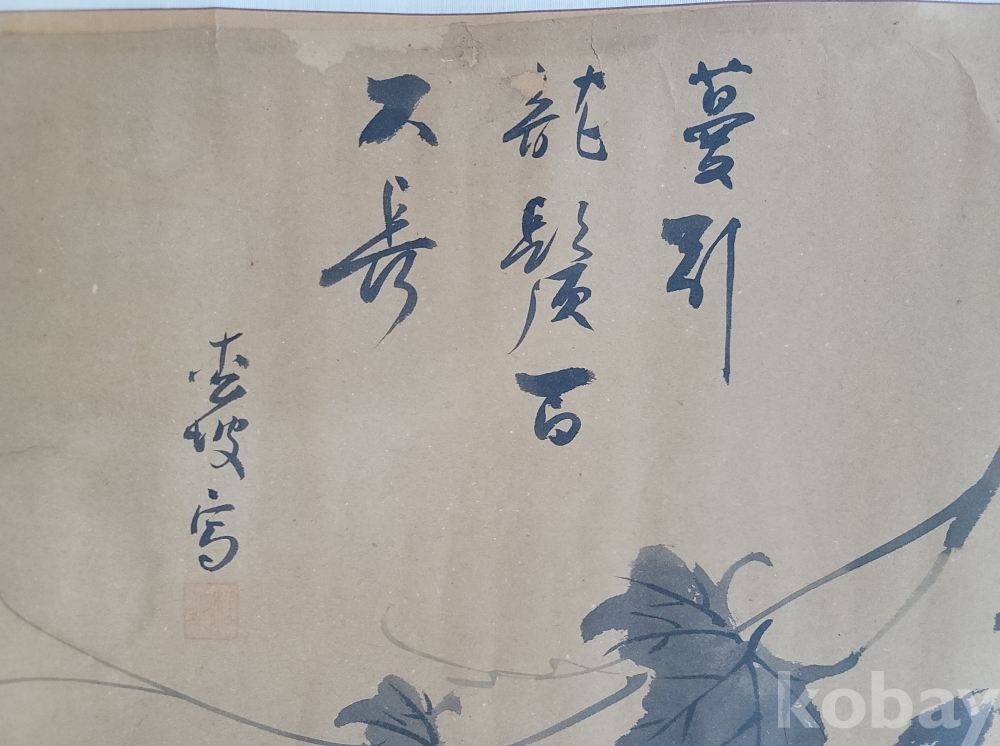 蔓引
龍鬚百
尺長
杏坡寫
kobay